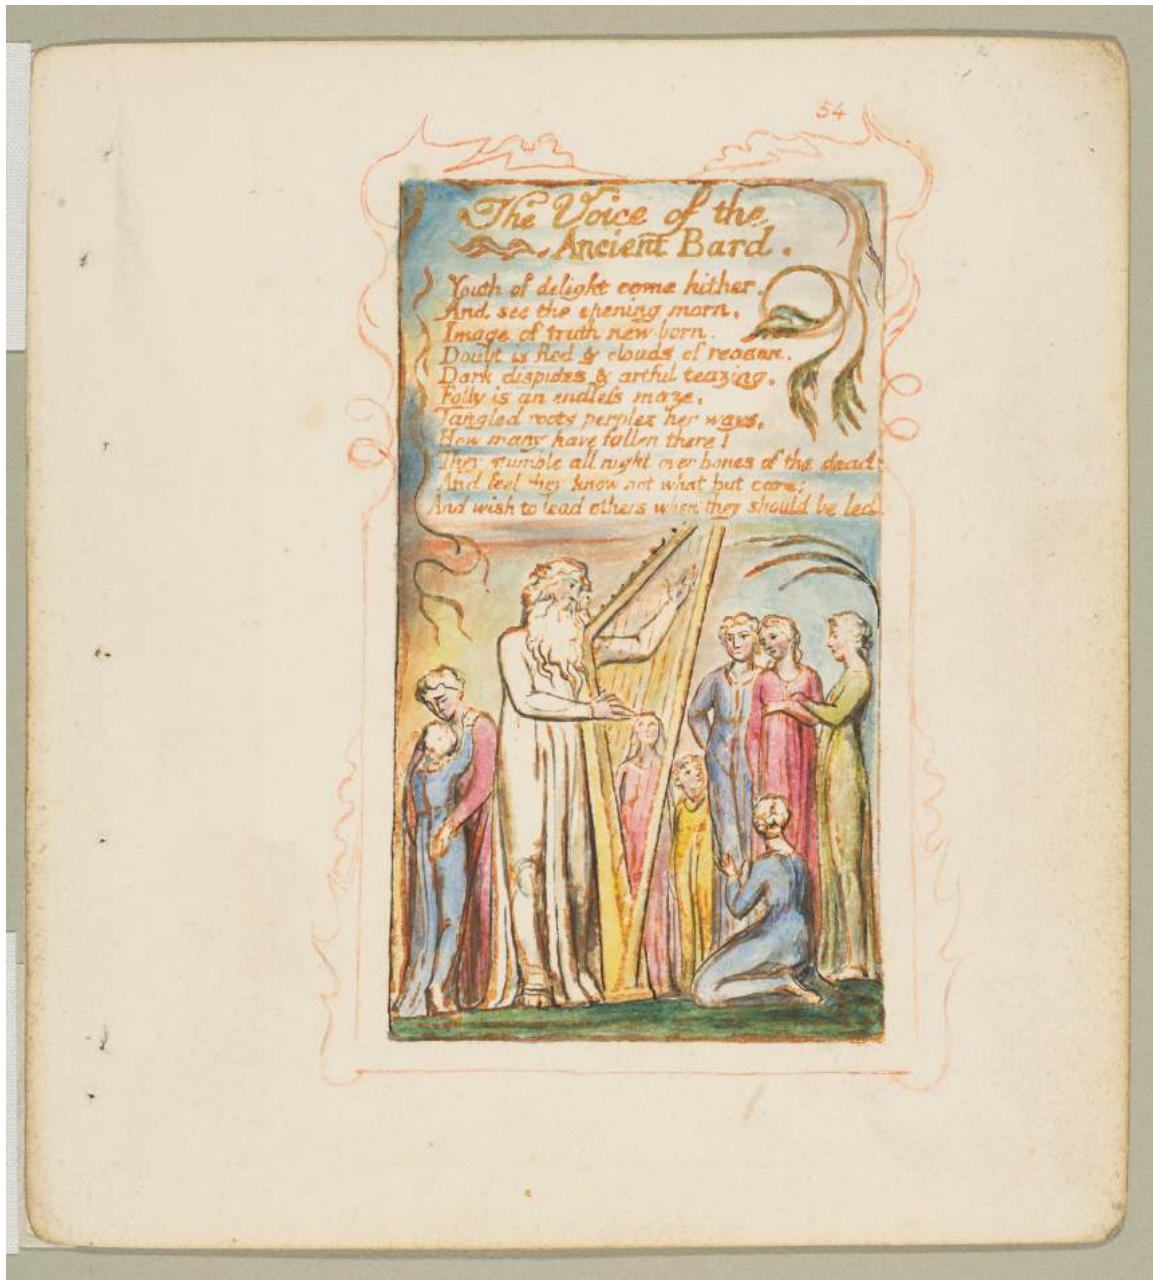 54
The Voice of the
Ancient Bard.
Youth of delight come hither.
And see the opening morn,
Image of truth new born.
Doubt is fled & clouds of reason.
Dark disputes & artful teazing.
Folly is an endless maze.
Tangled roots perplex her ways,
How many have fallen there!
They stumble all night over bones of the dead:
And feel they know not what but care;
And wish to lead others when they should be led.